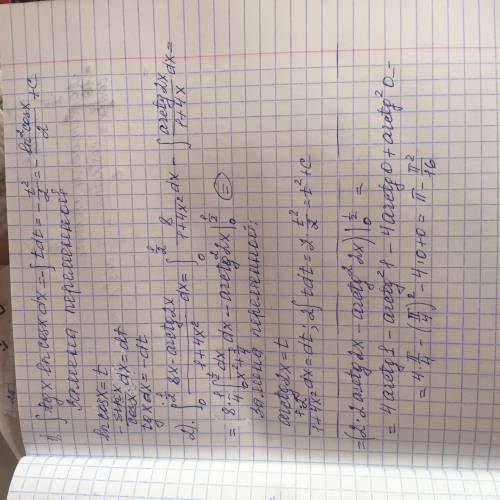 1) ∫ tgx ln cosx dx = -∫ t dt = -t²/2 = -ln²cosx/2 + C
Замена переменной
ln cosx = t
-sinx/cosx dx = dt
tgx dx = -dt
2). ∫₀^½ (8x - arctg2x)/(1+4x²) dx = ∫₀^½ 8/(1+4x²) dx - ∫ arctg2x/(1+4x) dx =
= 8·¼ ∫₀^½ dx/(x²+¼) dx - arctg2x |₀^½ ⊜
Замена переменной:
arctg2x = t
1·2/(1+4x²) dx = dt; 2∫ t dt = 2·t²/2 = t² + C
= (2·2 arctg2x - arctg²2x) |₀^½ =
= 4arctg1 - arctg²1 - 4arctg0 + arctg²0 =
= 4·π/4 - (π/4)² - 4·0 + 0 = π - π²/16